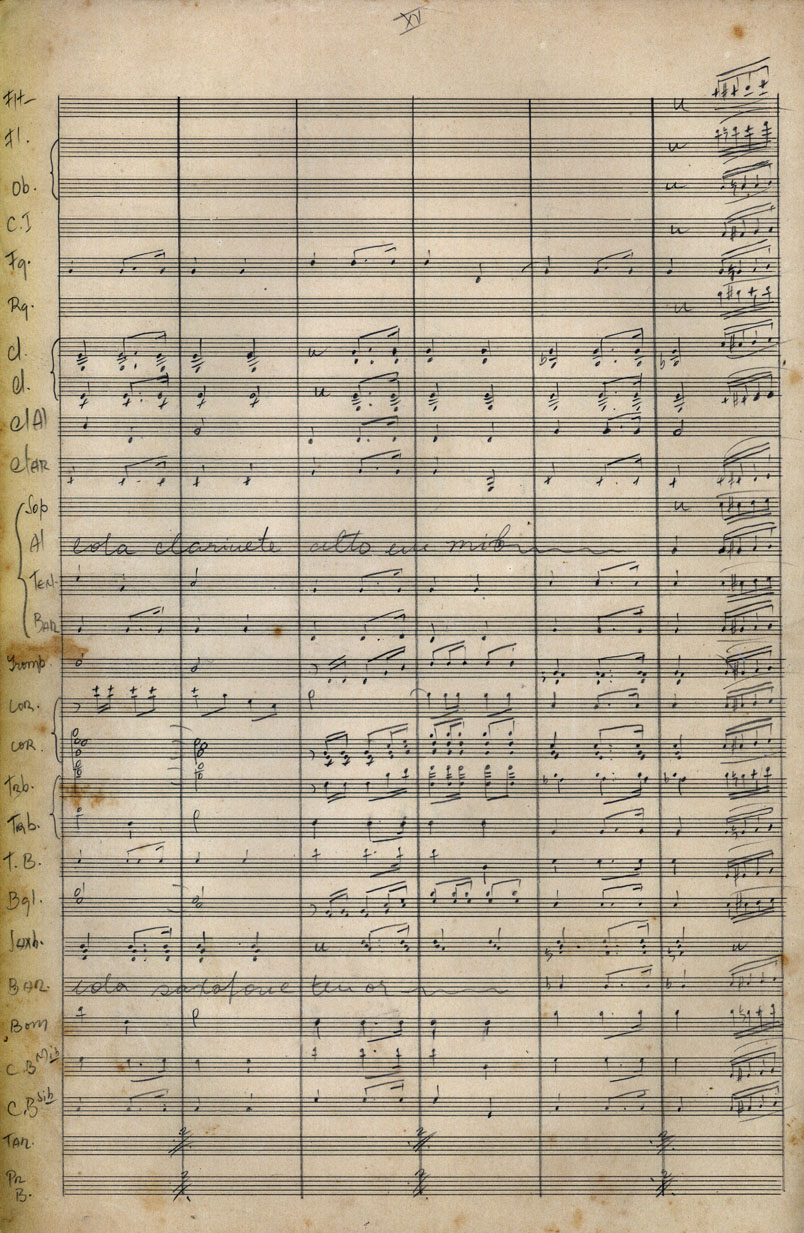 XV
Fl.
Ob.
C.I
Fg.
Rq.
Cl.
Cl.
Cl Al
Cl AR
Sop
Al cola clarinete alto em mib
TEN.
BAR
Tromp.
COR.
COR.
Trb.
Trb.
T.B.
Bgl.
Saxh.
BAR. cola saxofone tenor
Bom
C.B Mib
C.B Sib
TAR.
B.